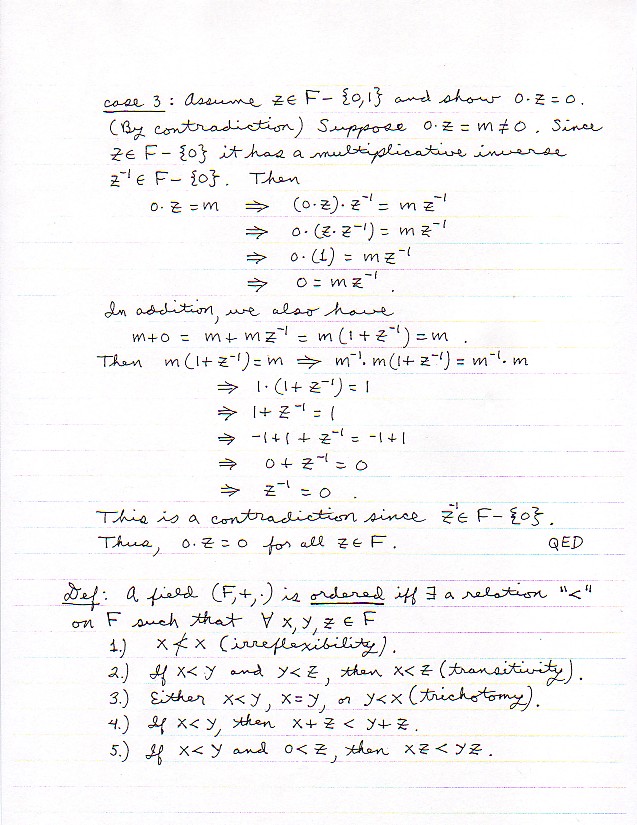 case 3 : Assume z ∈ F - {0,1} and show 0·z = 0.
(By contradiction) Suppose 0·z = m ≠ 0. Since
z ∈ F - {0} it has a multiplicative inverse
z⁻¹ ∈ F - {0}. Then
0·z = m ⇒ (0·z)·z⁻¹ = m z⁻¹
⇒ 0·(z·z⁻¹) = m z⁻¹
⇒ 0·(1) = m z⁻¹
⇒ 0 = m z⁻¹.
In addition, we also have
m+0 = m + m z⁻¹ = m(1 + z⁻¹) = m.
Then m(1+z⁻¹) = m ⇒ m⁻¹·m(1+z⁻¹) = m⁻¹·m
⇒ 1·(1+z⁻¹) = 1
⇒ 1 + z⁻¹ = 1
⇒ -1+1 + z⁻¹ = -1+1
⇒ 0 + z⁻¹ = 0
⇒ z⁻¹ = 0.
This is a contradiction since z⁻¹ ∈ F - {0}.
Thus, 0·z = 0 for all z ∈ F. QED
Def: A field (F,+,·) is ordered iff ∃ a relation "<"
on F such that ∀ x, y, z ∈ F
1.) x ≮ x (irreflexibility).
2.) If x < y and y < z, then x < z (transitivity).
3.) Either x < y, x = y, or y < x (trichotomy).
4.) If x < y, then x + z < y + z.
5.) If x < y and 0 < z, then xz < yz.